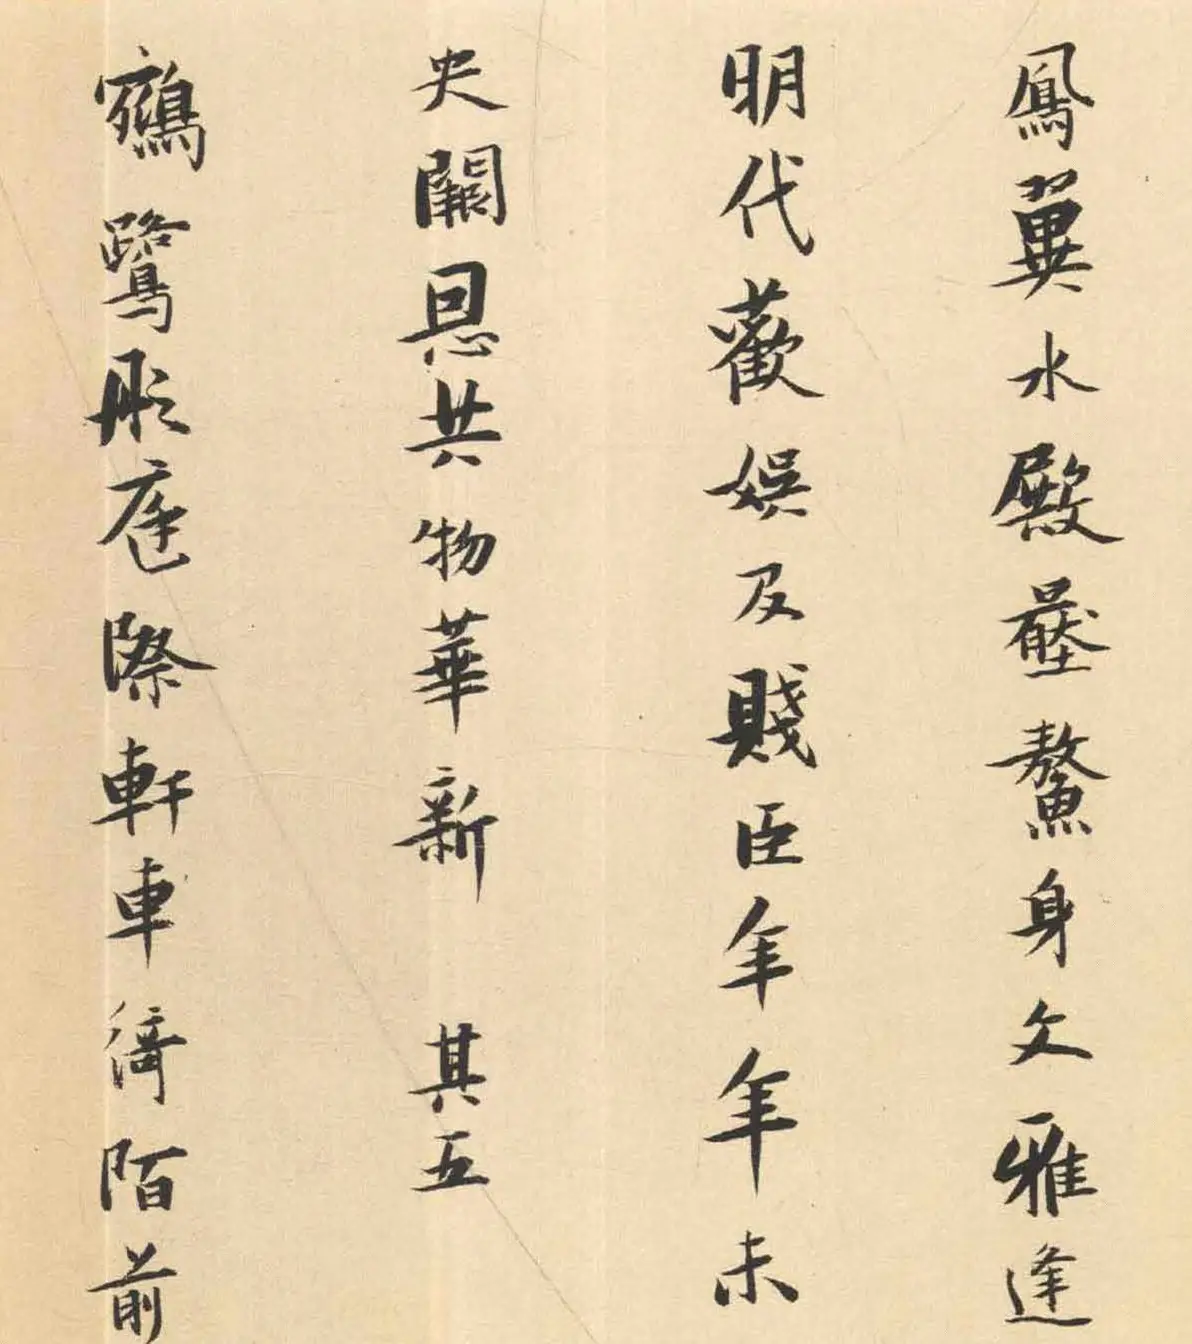 鳳翼水殿壓鰲身文雅逢
明代歡娛及賤臣年年未
央闕恩共物華新 其五
鵷鷺彤庭際軒車綺陌前